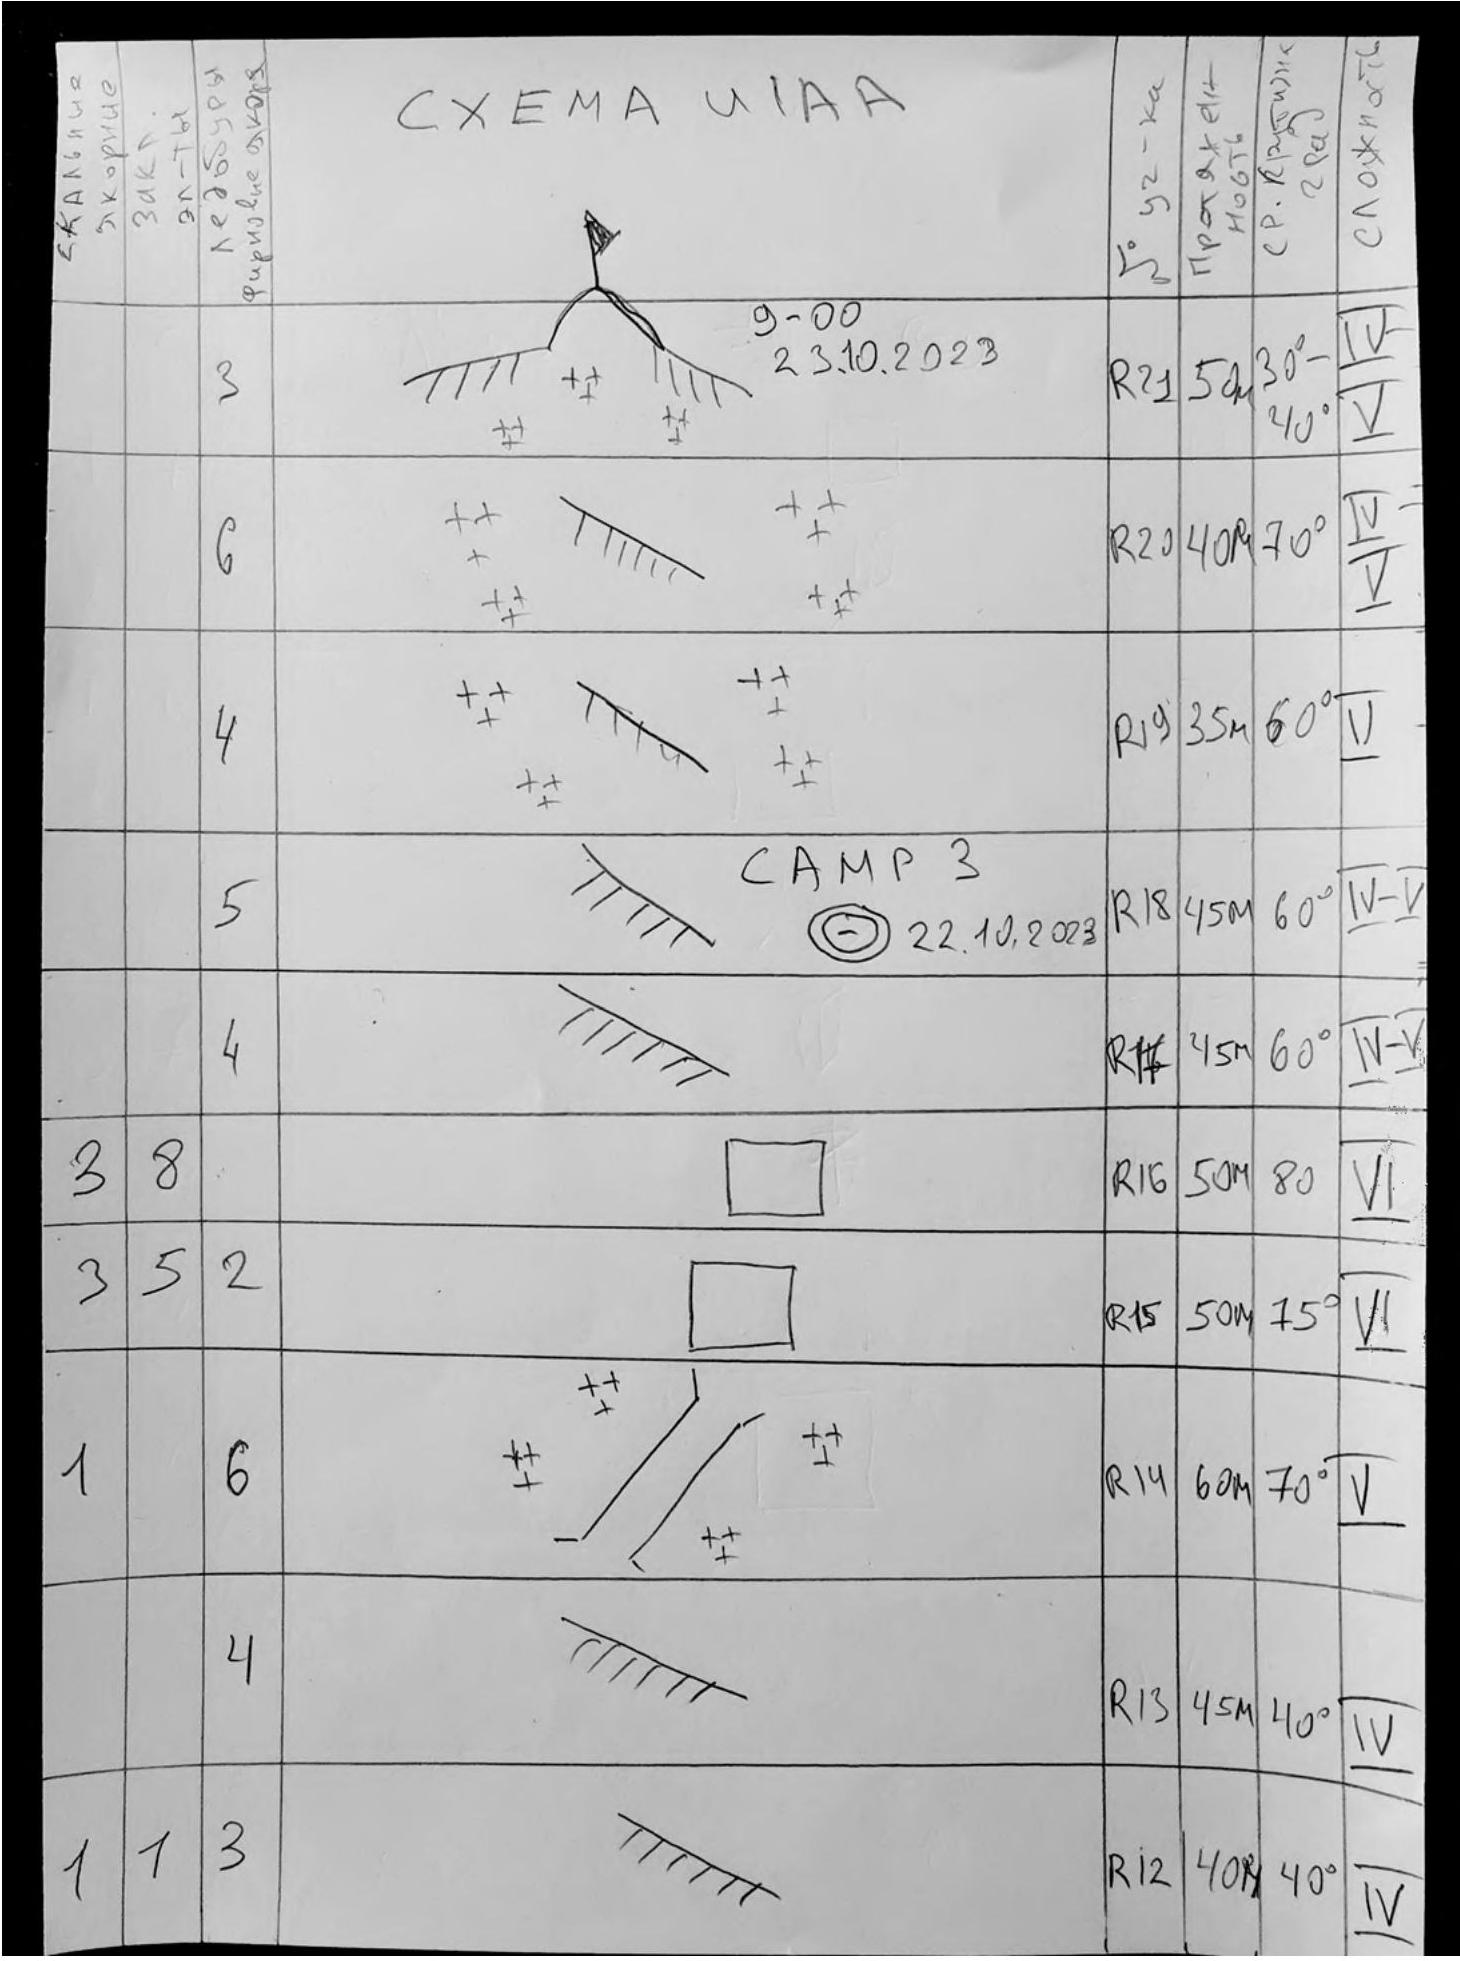 СКАЛЬНЫЕ
ЯКОРНЫЕ
ЗАКЛ.
ЭЛ-ТЫ
ледобуры
фирновые якоря
СХЕМА UIAA
№ уч-ка
Протяжен
ность
СР. Крутизна
град
СЛОЖНОСТЬ
3
9-00
23.10.2023
R21 50м 30°-
40°
IV-
V
6 R20 40м 70° IV-
V
4 R19 35м 60° V
CAMP 3
5 22.10.2023 R18 45м 60° IV-V
4 45м 60° IV-V
3 8 R16 50м 80 VI
3 5 2 R15 50м 75° VI
1 6 R14 60м 70° V
4 R13 45м 40° IV
1 1 3 R12 40м 40° IV